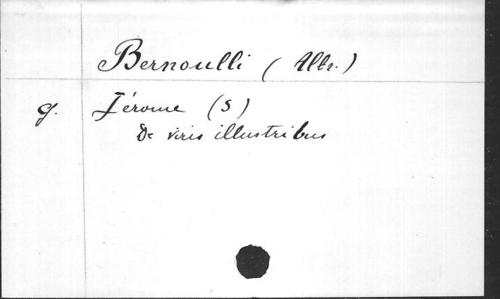 Bernoulli (Albr.)
cf. Jérome (S)
De viris illustribus